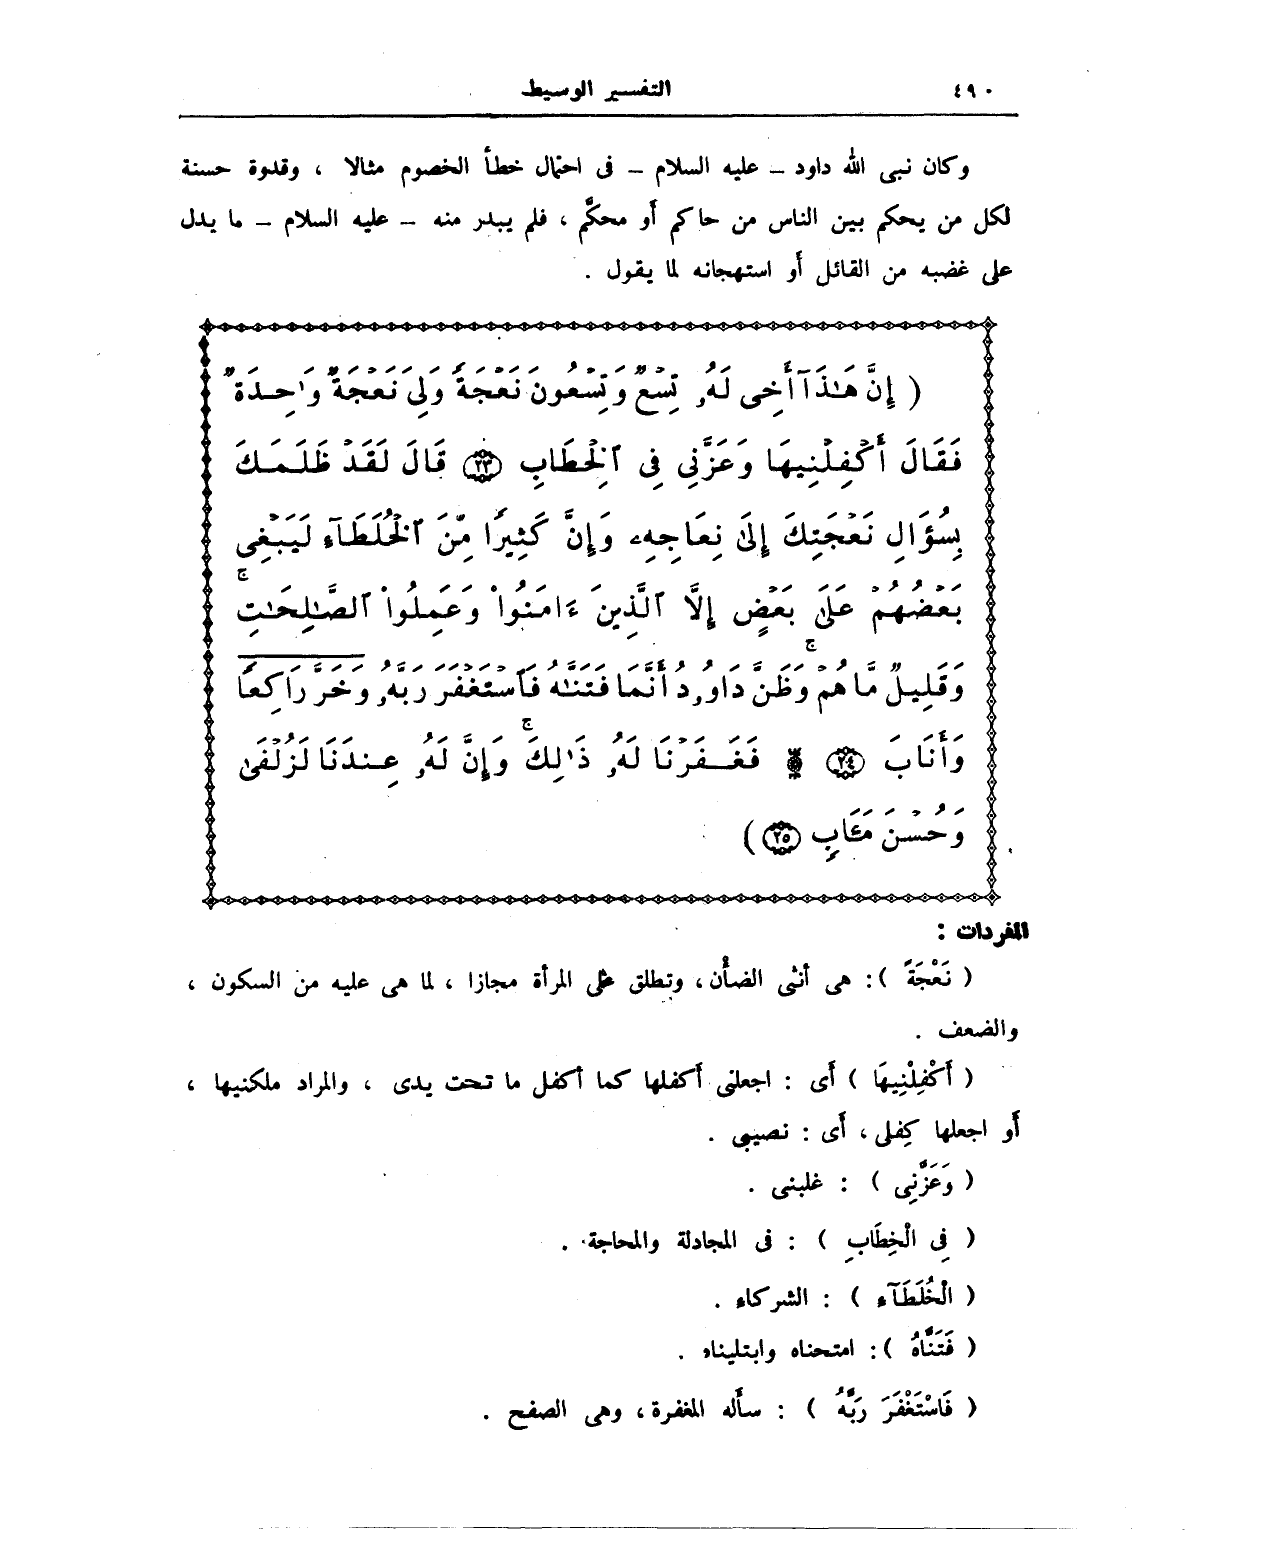 ٤٩٠
التفسير الوسيط
وكان نبى الله داود ــ عليه السلام ــ فى احتمال خطأ الخصوم مثالا ، وقدوة حسنة
لكل من يحكم بين الناس من حاكم أو محكَّم ، فلم يبدر منه ــ عليه السلام ــ ما يدل
على غضبه من القائل أو استهجانه لما يقول .
( إِنَّ هَٰذَآ أَخِى لَهُۥ تِسْعٌ وَتِسْعُونَ نَعْجَةً وَلِىَ نَعْجَةٌ وَٰحِدَةٌ
فَقَالَ أَكْفِلْنِيهَا وَعَزَّنِى فِى ٱلْخِطَابِ ﴿٢٣﴾ قَالَ لَقَدْ ظَلَمَكَ
بِسُؤَالِ نَعْجَتِكَ إِلَىٰ نِعَاجِهِۦ وَإِنَّ كَثِيرًا مِّنَ ٱلْخُلَطَآءِ لَيَبْغِى
بَعْضُهُمْ عَلَىٰ بَعْضٍ إِلَّا ٱلَّذِينَ ءَامَنُوا۟ وَعَمِلُوا۟ ٱلصَّٰلِحَٰتِ ۚ
وَقَلِيلٌ مَّا هُمْ ۗ وَظَنَّ دَاوُۥدُ أَنَّمَا فَتَنَّٰهُ فَٱسْتَغْفَرَ رَبَّهُۥ وَخَرَّ رَاكِعًا
وَأَنَابَ ﴿٢٤﴾ ۩ فَغَفَرْنَا لَهُۥ ذَٰلِكَ ۖ وَإِنَّ لَهُۥ عِندَنَا لَزُلْفَىٰ
وَحُسْنَ مَـَٔابٍ ﴿٢٥﴾ )
المفردات :
( نَعْجَةً ): هى أنثى الضأن، وتطلق على المرأة مجازا ، لما هى عليه من السكون ،
والضعف .
( أَكْفِلْنِيهَا ) أى : اجعلنى أكفلها كما أكفل ما تحت يدى ، والمراد ملكنيها ،
أو اجعلها كِفلى ، أى : نصيبى .
( وَعَزَّنِى ) : غلبنى .
( فِى الْخِطَابِ ) : فى المجادلة والمحاجة .
( الْخُلَطَآءِ ) : الشركاء .
( فَتَنَّاهُ ): امتحناه وابتليناه .
( فَاسْتَغْفَرَ رَبَّهُ ) : سأله المغفرة ، وهى الصفح .